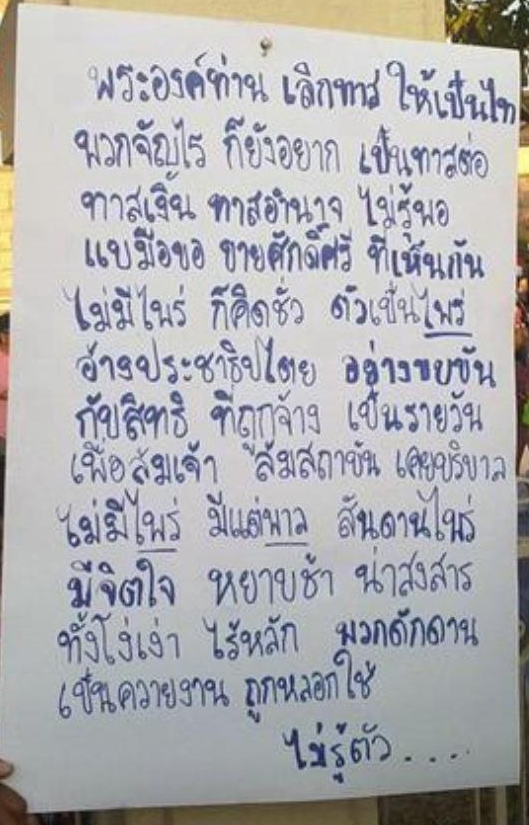 พระองค์ท่าน เลิกทาส ให้เป็นไท
พวกจัญไร ก็ยังอยาก เป็นทาสต่อ
ทาสเงิน ทาสอำนาจ ไม่รู้พอ
แบมือขอ ขายศักดิ์ศรี ที่เห็นกัน
ไม่มีไพร่ ก็คิดชั่ว ตัวเป็นไพร่
อ้างประชาธิปไตย อย่างขบขัน
กับสิทธิ ที่ถูกจ้าง เป็นรายวัน
เพื่อล้มเจ้า ล้มสถาบัน เคยบริบาล
ไม่มีไพร่ มีแต่พาล สันดานไพร่
มีจิตใจ หยาบช้า น่าสงสาร
ทั้งโง่เง่า ไร้หลัก พวกดักดาน
เป็นควายงาน ถูกหลอกใช้
ไม่รู้ตัว.....